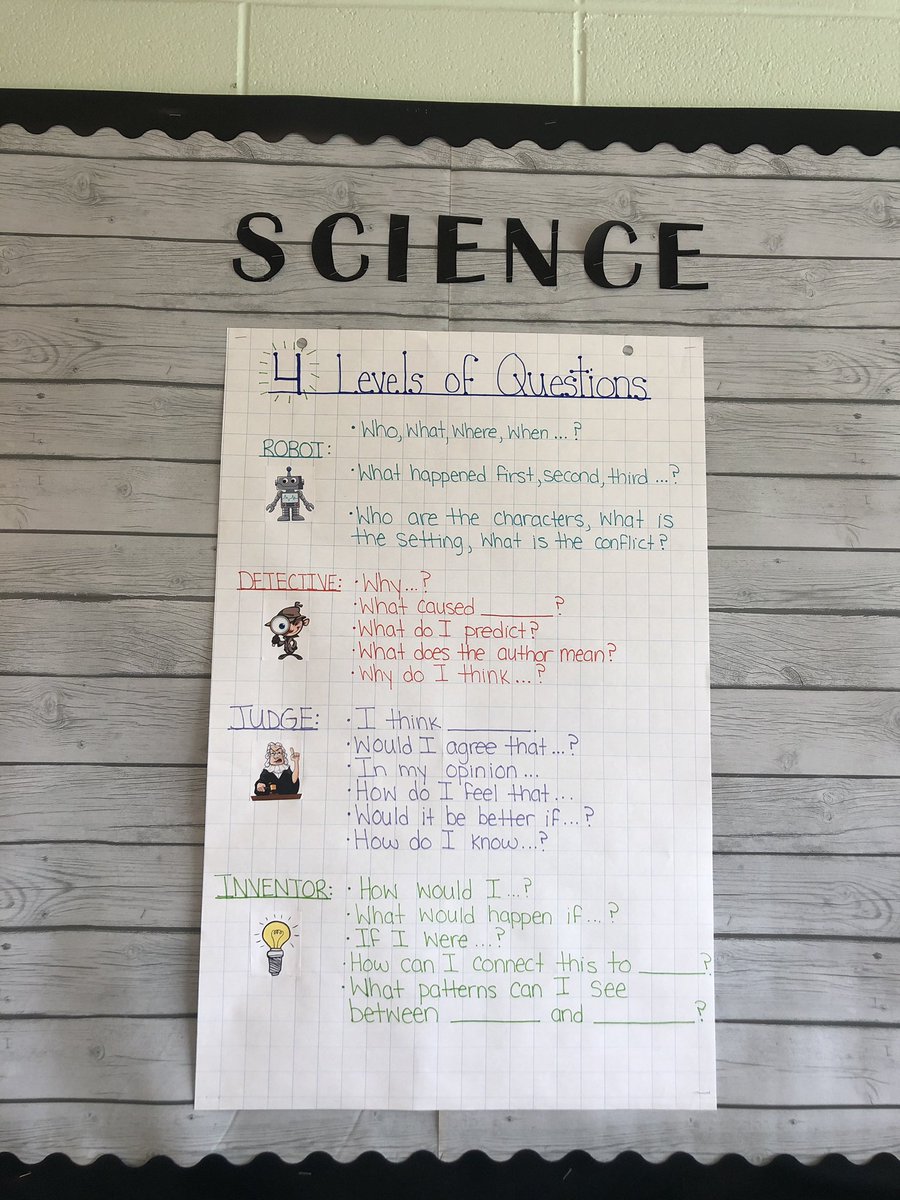 SCIENCE
4 Levels of Questions
ROBOT:
• Who, What, Where, When ... ?
• What happened first, second, third ... ?
• Who are the characters, what is
the setting, what is the conflict?
DETECTIVE:
• Why...?
• What caused ________?
• What do I predict?
• What does the author mean?
• Why do I think ... ?
JUDGE:
• I think ________.
• Would I agree that...?
• In my opinion ...
• How do I feel that...
• Would it be better if...?
• How do I know...?
INVENTOR:
• How would I ...?
• What would happen if...?
• If I were ...?
• How can I connect this to ______?
• What patterns can I see
between ________ and ________?